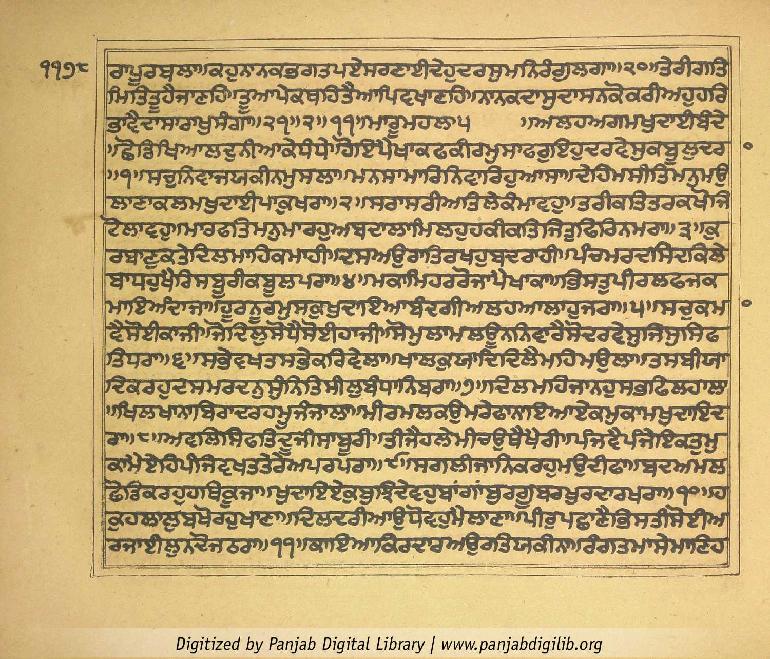 ੧੧੭੮
ਰਾਪੂਰਬਲਾ॥ਕਹੁਨਾਨਕਭਗਤਪਏਸਰਣਾਈਦੇਹੁਦਰਸੁਮਨਿਰੰਗੁਲਗਾ॥੨੦॥ਤੇਰੀਗਤਿ
ਮਿਤਿਤੂਹੈਜਾਣਹਿ॥ਤੂਆਪੇਕਥਹਿਤੈਆਪਿਵਖਾਣਹਿ॥ਨਾਨਕਦਾਸੁਦਾਸਨਕੋਕਰੀਅਹੁਹਰਿ
ਭਾਵੈਦਾਸਾਰਾਖੁਸੰਗਾ॥੨੧॥੨॥੧੧॥ਮਾਰੂਮਹਲਾ੫ ॥ਅਲਹਅਗਮਖੁਦਾਈਬੰਦੇ
॥ਛੋਡਿਖਿਆਲਦੁਨੀਆਕੇਧੰਧੇ॥ਹੋਇਪੈਖਾਕਫਕੀਰਮੁਸਾਫਰੁਇਹੁਦਰਵੇਸੁਕਬੂਲੁਦਰਾ
॥੧॥ਸਚੁਨਿਵਾਜਯਕੀਨਮੁਸਲਾ॥ਮਨਸਾਮਾਰਿਨਿਵਾਰਿਹੁਆਸਾ॥ਦੇਹਮਸੀਤਿਮਨੁਮਉ
ਲਾਣਾਕਲਮਖੁਦਾਈਪਾਕੁਖਰਾ॥੨॥ਸਰਾਸਰੀਅਤਿਲੇਕੰਮਾਵਹੁ॥ਤਰੀਕਤਿਤਰਕਖੋਜਿ
ਟੋਲਾਵਹੁ॥ਮਾਰਫਤਿਮਨੁਮਾਰਹੁਅਬਦਾਲਾਮਿਲਹੁਹਕੀਕਤਿਜਿਤੁਫਿਰਿਨਮਰਾ॥੩॥ਕੁ
ਰਾਣੁਕਤੇਬਦਿਲਮਾਹਿਕਮਾਹੀ॥ਦਸਅਉਰਾਤਿਰਖਹੁਬਦਰਾਹੀ॥ਪੰਚਮਰਦਸਿਦਕਿਲੇ
ਬਾਧਹੁਖੈਰਿਸਬੂਰੀਕਬੂਲਪਰਾ॥੪॥ਮਕਾਮਿਹਰਰੋਜਾਪੈਖਾਕਾ॥ਭਿਸਤੁਪੀਰਲਫਜਕ
ਮਾਇਅੰਦਾਜਾ॥ਹੂਰਨੂਰਮੁਸਕੁਖੁਦਾਇਆਬੰਦਗੀਅਲਹਆਲਾਹੁਜਰਾ॥੫॥ਸਚੁਕਮਾ
ਵੈਸੋਈਕਾਜੀ॥ਜੋਦਿਲੁਸੋਧੈਸੋਈਹਾਜੀ॥ਸੋਮੁਲਾਮਲਊਨਨਿਵਾਰੈਸੋਦਰਵੇਸੁਜਿਸੁਸਿਫ
ਤਿਧਰਾ॥੬॥ਸਭੇਵਖਤਸਭੇਕਰਿਵੇਲਾ॥ਖਾਲਕੁਯਾਦਿਦਿਲੈਮਹਿਮਉਲਾ॥ਤਸਬੀਯਾ
ਦਿਕਰਹੁਦਸਮਰਦਨੁਸੁੰਨਤਿਸੀਲੁਬੰਧਾਨਿਬਰਾ॥੭॥ਦਿਲਮਹਿਜਾਨਹੁਸਭਫਿਲਹਾਲਾ
॥ਖਿਲਖਾਨਾਬਿਰਾਦਰਹਮੂਜੰਜਾਲਾ॥ਮੀਰਮਲਕਉਮਰੇਫਾਨਾਇਆਏਕਮੁਕਾਮਖੁਦਾਇਦ
ਰਾ॥੮॥ਅਵਲਿਸਿਫਤਿਦੂਜੀਸਾਬੂਰੀ॥ਤੀਜੈਹਲੇਮੀਚਉਥੈਖੈਰੀ॥ਪੰਜਵੈਪੰਜੇਇਕਤੁਮੁ
ਕਾਮੈਏਹਿਪੰਜਿਵਖਤਤੇਰੇਅਪਰਪਰਾ॥੯॥ਸਗਲੀਜਾਨਿਕਰਹੁਮਉਦੀਫਾ॥ਬਦਅਮਲ
ਛੋਡਿਕਰਹੁਹਥਿਕੂਜਾ॥ਖੁਦਾਇਏਕੁਬੁਝਿਦੇਵਹੁਬਾਂਗਾਂਬੁਰਗੂਬਰਖੁਰਦਾਰਖਰਾ॥੧੦॥ਹ
ਕੁਹਲਾਲੁਬਖੋਰਹੁਖਾਣਾ॥ਦਿਲਦਰੀਆਉਧੋਵਹੁਮੈਲਾਣਾ॥ਪੀਰੁਪਛਾਣੈਭਿਸਤੀਸੋਈਅ
ਜਰਾਈਲੁਨਦੋਜਠਰਾ॥੧੧॥ਕਾਇਆਕਿਰਦਾਰਅਉਰਤਯਕੀਨਾ॥ਰੰਗਤਮਾਸੇਮਾਣਿਹ
Digitized by Panjab Digital Library | www.panjabdigilib.org